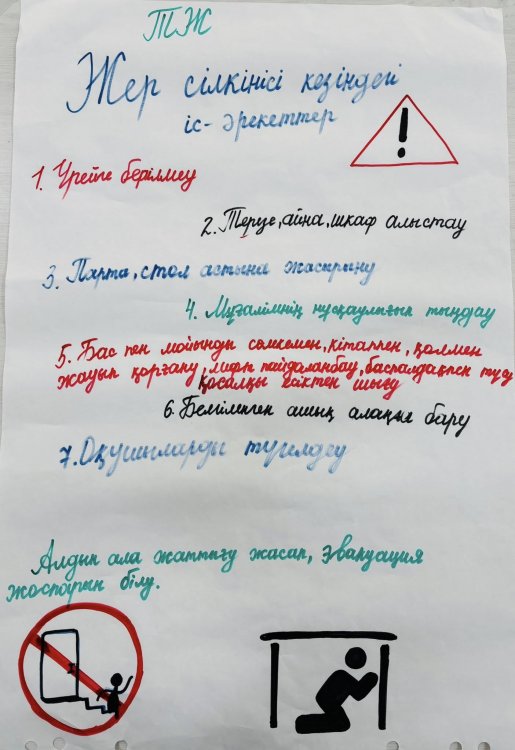 ТЖ
Жер сілкінісі кезіндегі
іс- әрекеттер
!
1. Үрейге берілмеу
2. Терезе, айна, шкаф алыстау
3. Парта, стол астына жасырыну
4. Мұғалімнің нұсқаулығын тыңдау
5. Бас пен мойынды сөмкемен, кітаппен, қолмен
жауып қорғану, лифт пайдаланбау, баспалдақпен түсу
қосалқы есіктен шығу
6. Белгіленген ашық алаңға бару
7. Оқушыларды түгелдеу
Алдын ала жаттығу жасап, эвакуация
жоспарын білу.